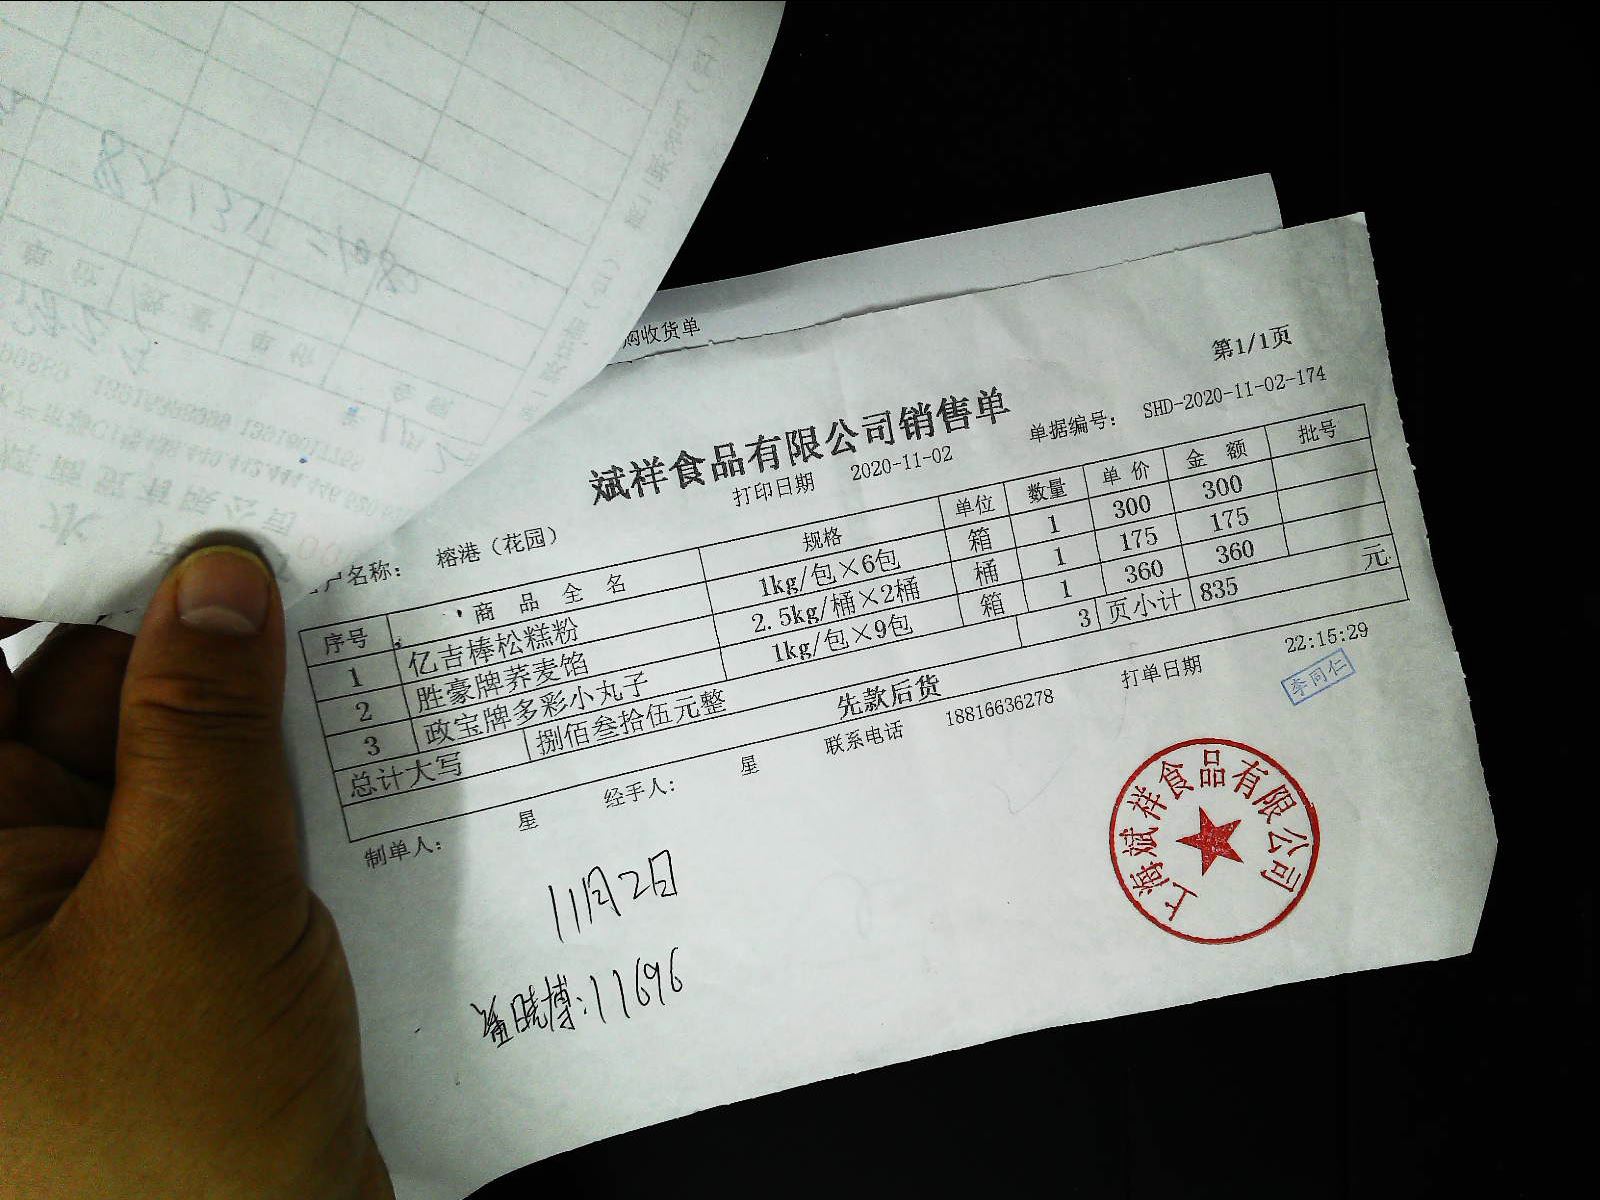 购收货单
第1/1页
斌祥食品有限公司销售单
打印日期 2020-11-02 单据编号： SHD-2020-11-02-174
户名称： 榕港（花园）
序号 商 品 全 名 规格 单位 数量 单 价 金 额 批号
1 亿吉棒松糕粉 1kg/包×6包 箱 1 300 300
2 胜豪牌荞麦馅 2.5kg/桶×2桶 桶 1 175 175
3 政宝牌多彩小丸子 1kg/包×9包 箱 1 360 360
总计大写 捌佰叁拾伍元整 3 页小计 835 元
先款后货
制单人： 星 经手人： 星 联系电话 18816636278 打单日期 22:15:29
李同仁
上海斌祥食品有限公司
11月2日
晓博:11696